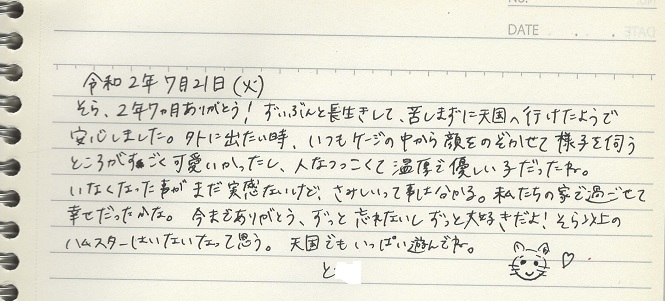 DATE
令和2年7月21日(火)
そら、2年7ヵ月ありがとう！ずいぶんと長生きして、苦しまずに天国へ行けたようで
安心しました。外に出たい時、いつもケージの中から顔をのぞかせて様子を伺う
ところがすごく可愛いかったし、人なつっこくて温厚で優しい子だったね。
いなくなった事がまだ実感ないけど、さみしいって事は分かる。私たちの家で過ごせて
幸せだったかな。今までありがとう、ずっと忘れないしずっと大好きだよ！そら以上の
ハムスターはいないなって思う。天国でもいっぱい遊んでね。
と